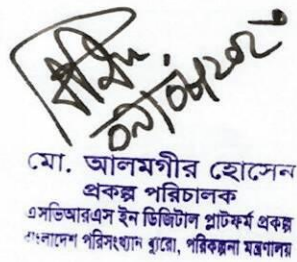 মো. আলমগীর হোসেন
প্রকল্প পরিচালক
এসভিআরএস ইন ডিজিটাল প্লাটফর্ম প্রকল্প
বাংলাদেশ পরিসংখ্যান ব্যুরো, পরিকল্পনা মন্ত্রণালয়